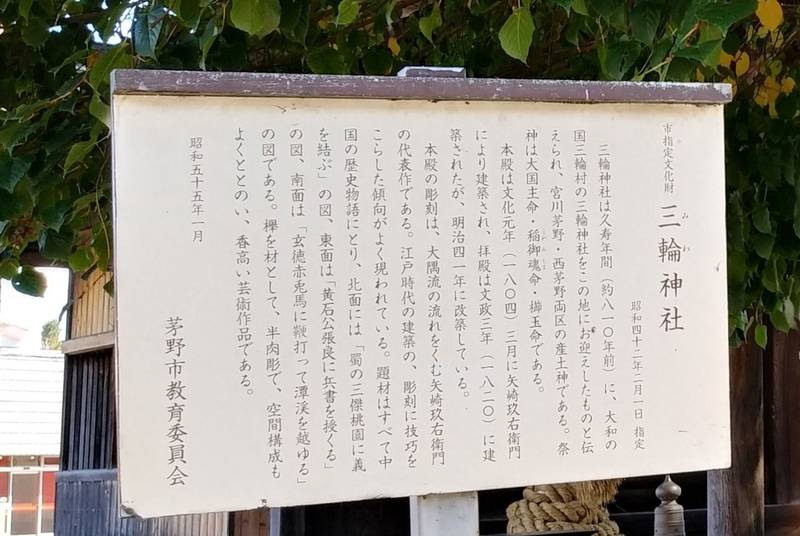 市指定文化財
三輪神社
みわ
昭和四十二年二月一日 指定
三輪神社は久寿年間(約八一〇年前)に、大和の
国三輪村の三輪神社をこの地にお迎えしたものと伝
えられ、宮川茅野・西茅野両区の産土神である。祭
神は大国主命・稲御魂命・櫛玉命である。
本殿は文化元年(一八〇四)三月に矢崎玖右衛門
により建築され、拝殿は文政三年(一八二〇)に建
築されたが、明治四一年に改築している。
本殿の彫刻は、大隅流の流れをくむ矢崎玖右衛門
の代表作である。江戸時代の建築の、彫刻に技巧を
こらした傾向がよく現われている。題材はすべて中
国の歴史物語にとり、北面には「蜀の三傑桃園に義
を結ぶ」の図、東面は「黄石公張良に兵書を授くる」
の図、南面は「玄徳赤兎馬に鞭打って潭渓を越ゆる」
の図である。欅を材として、半肉彫で、空間構成も
よくととのい、香高い芸術作品である。
昭和五十五年一月
茅野市教育委員会